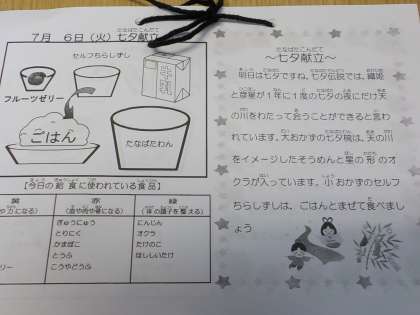 7月 6日(火)七夕献立
セルフちらしずし
フルーツゼリー
ごはん
たなばたわん
【今日の給食に使われている食品】
赤
緑
(体の調子を整える)
ぎゅうにゅう
とりにく
かまぼこ
とうふ
こうやどうふ
にんじん
オクラ
たけのこ
ほししいたけ
リー
～七夕献立～
明日は七夕ですね。七夕伝説では、織姫
と彦星が1年に1度の七夕の夜にだけ天
の川をわたって会うことができると言わ
れています。大おかずの七夕椀は、天の川
をイメージしたそうめんと星の形のオ
クラが入っています。小おかずのセルフ
ちらしずしは、ごはんとまぜて食べましょ
う